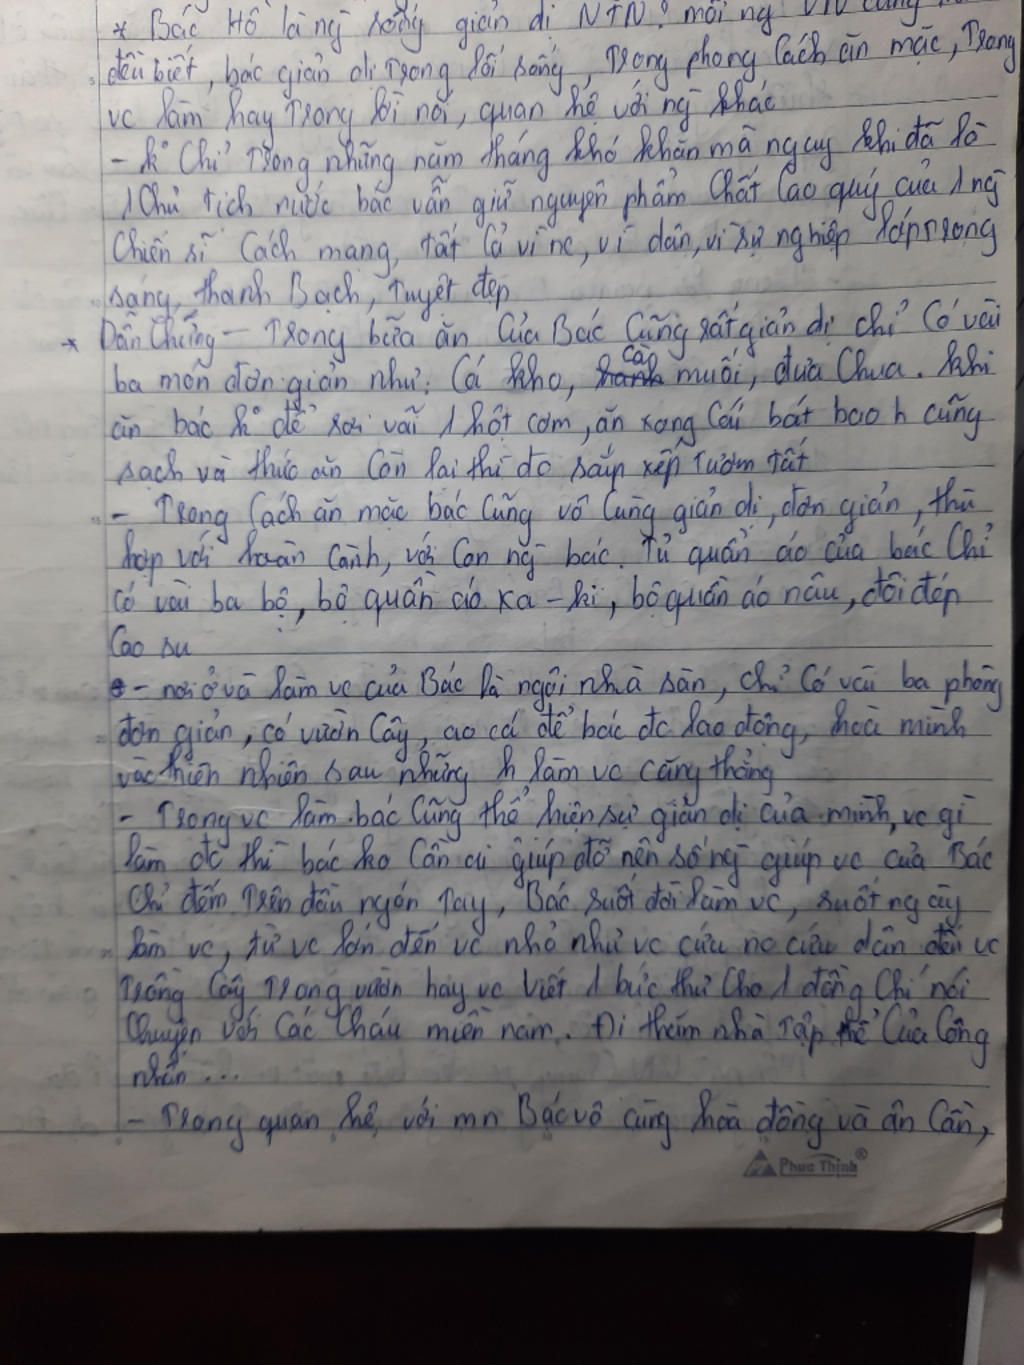 * Bác Hồ là ng sống giản dị NTN? mỗi ng VN cũng
đều biết, bác giản dị trong lối sống, trong phong cách ăn mặc, trong
vc làm hay trong lời nói, quan hệ với ng khác
- k° chỉ trong những năm tháng khó khăn mà ngay khi đã là
1 Chủ tịch nước bác vẫn giữ nguyên phẩm chất cao quý của 1 ng
chiến sĩ cách mạng, tất cả vì nc, vì dân, vì sự nghiệp lớp trong
sáng, thanh Bạch, tuyệt đẹp
* Dẫn Chứng - Trong bữa ăn của Bác cũng rất giản dị chỉ có vài
ba món đơn giản như: Cá kho, cà muối, dưa chua. khi
ăn bác k° để rơi vãi 1 hột cơm, ăn xong cái bát bao h cũng
sạch và thức ăn còn lại thì đc sắp xếp tươm tất
- Trong cách ăn mặc bác cũng vô cùng giản dị, đơn giản, thù
hợp với hoàn cảnh, với con ng bác. Tủ quần áo của bác chỉ
có vài ba bộ, bộ quần áo ka-ki, bộ quần áo nâu, đôi dép
cao su
- nơi ở và làm vc của Bác là ngôi nhà sàn, chỉ có vài ba phòng
đơn giản, có vườn cây, ao cá để bác đc lao động, hoà mình
vào thiên nhiên sau những h làm vc căng thẳng
- Trong vc làm bác cũng thể hiện sự giản dị của mình, vc gì
làm đc thì bác ko cần ai giúp đỡ nên số ng giúp vc của Bác
chỉ đếm trên đầu ngón tay, Bác suốt đời làm vc, suốt ngày
làm vc, từ vc lớn đến vc nhỏ như vc cứu nc cứu dân đến vc
trồng cây trong vườn hay vc viết 1 bức thư cho 1 đồng chí nói
chuyện với các cháu miền nam. Đi thăm nhà tập thể của công
nhân ...
- Trong quan hệ với mn Bác vô cùng hoà đồng và ân cần,
Phuc Thinh®